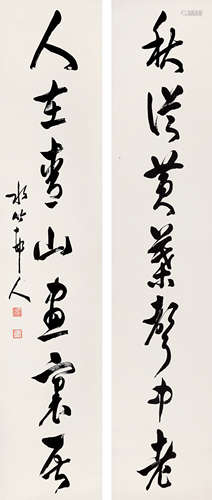 秋从黄叶声中老
人在青山画里居
水竹邨人